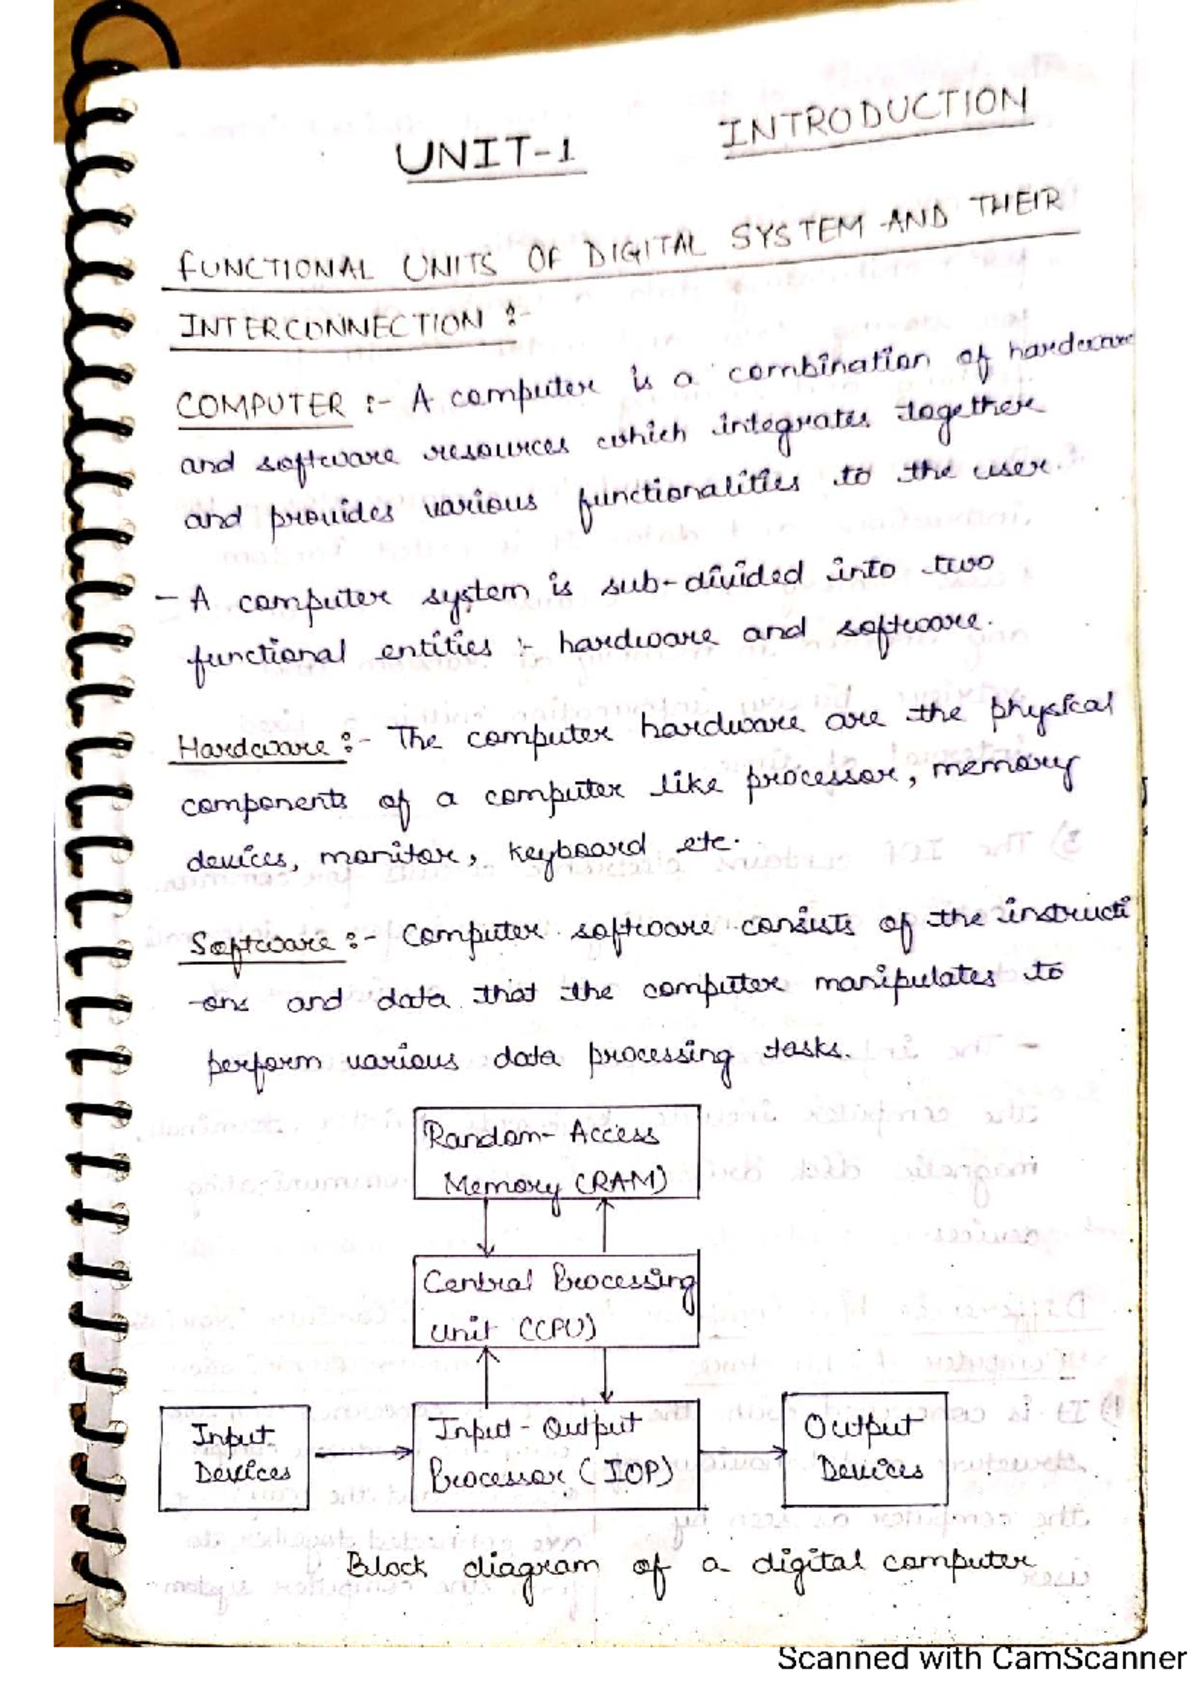 UNIT-1 INTRODUCTION
FUNCTIONAL UNITS OF DIGITAL SYSTEM AND THEIR
INTERCONNECTION :-
COMPUTER :- A computer is a combination of hardware
and software resources which integrates together
and provides various functionalities to the user.
- A computer system is sub-divided into two
functional entities :- hardware and software.
Hardware :- The computer hardware are the physical
components of a computer like processor, memory
devices, monitor, keyboard etc.
Software :- Computer software consists of the instructi
-ons and data that the computer manipulates to
perform various data processing tasks.
Random-Access
Memory (RAM)
Central Processing
unit (CPU)
Input
Devices
Input-Output
Processor (IOP)
Output
Devices
Block diagram of a digital computer
Scanned with CamScanner